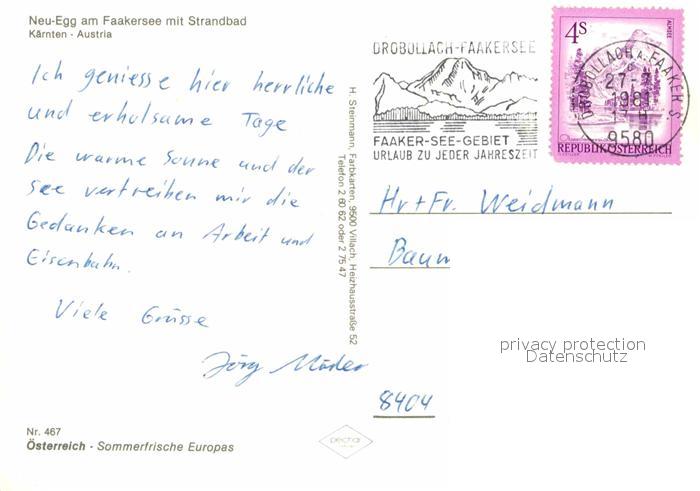 Neu-Egg am Faakersee mit Strandbad
Kärnten - Austria
Ich geniesse hier herrliche
und erholsame Tage
Die warme Sonne und der
See vertreiben mir die
Gedanken an Arbeit und
Eisenbahn.
Viele Grüsse
Jörg Mäder
Nr. 467
Österreich - Sommerfrische Europas
H. Steinmann, Farbkarten, 9500 Villach, Heizhausstraße 52
Telefon 2 60 62 oder 2 75 47
pechar
DROBOLLACH-FAAKERSEE
FAAKER-SEE-GEBIET
URLAUB ZU JEDER JAHRESZEIT
4S
ALMSEE
REPUBLIK ÖSTERREICH
DROBOLLACH A. FAAKER S.
9580
Hr+Fr. Weidmann
Baum
privacy protection
Datenschutz
8404